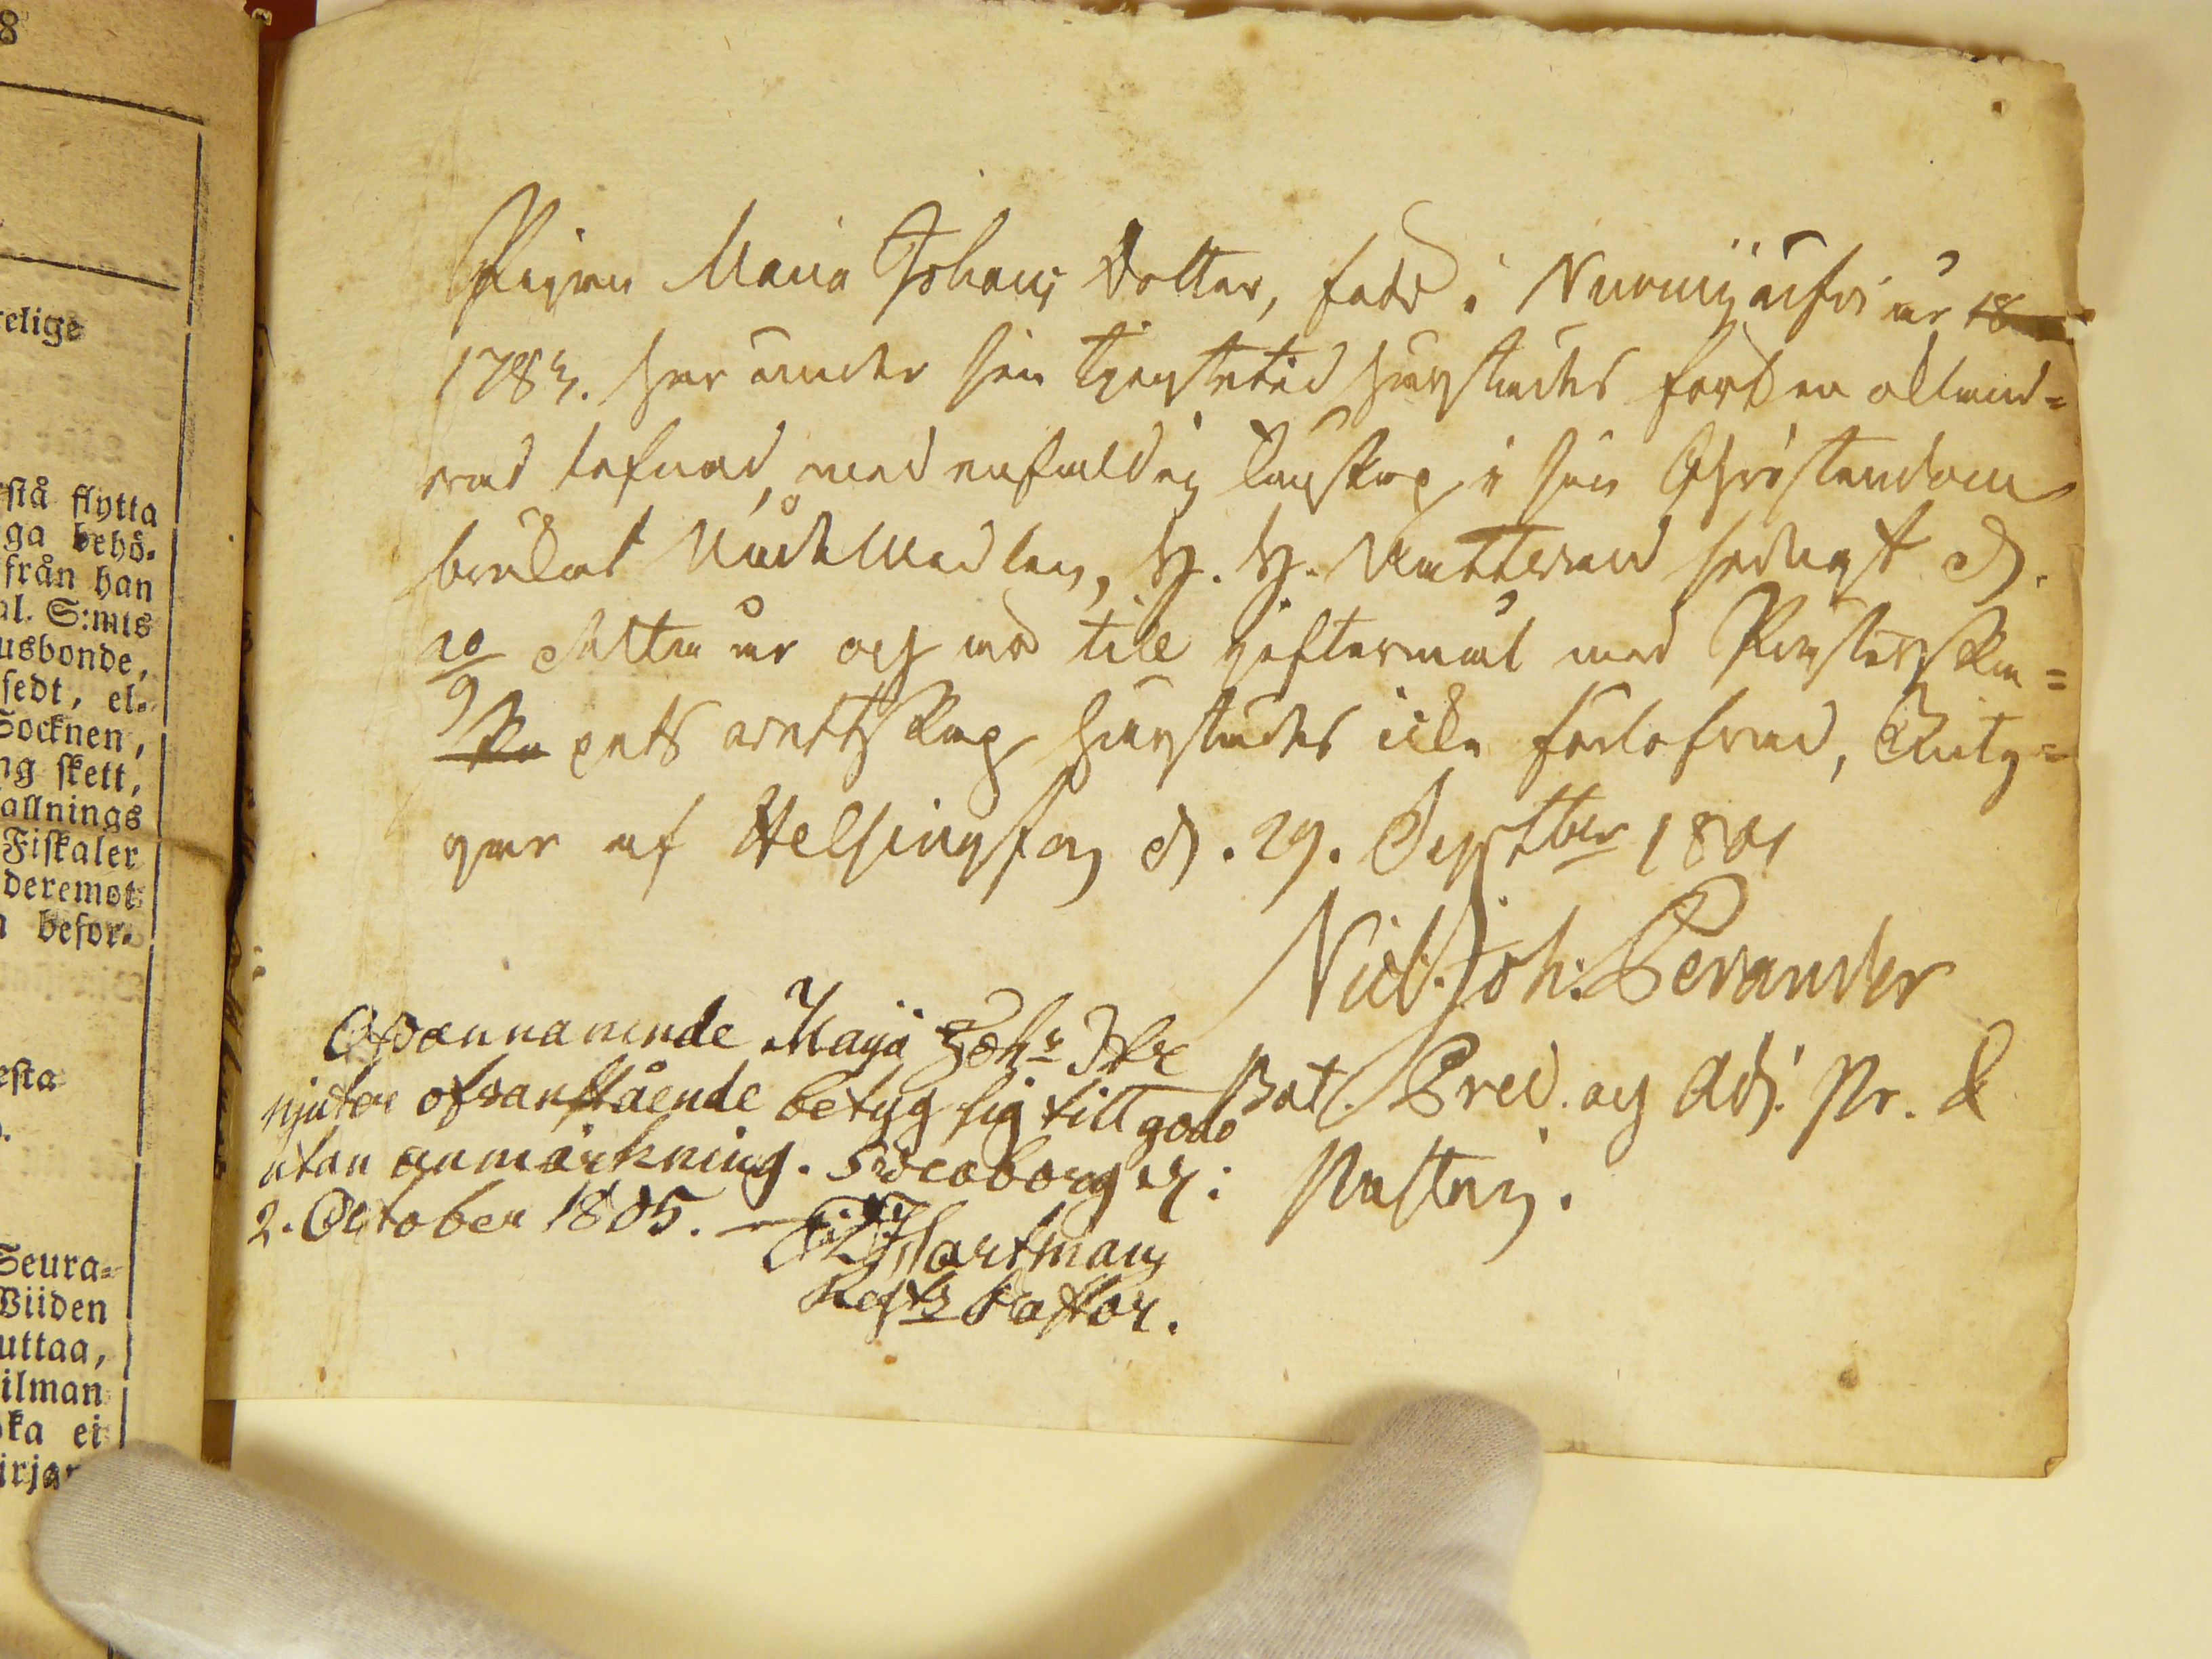 8
elige
stå flytta
ga behö-
från han
al. S:mts
usbonde,
sedt, el-
Socknen,
ng skett,
allnings
Fiskaler
deremot
befor-
esta
Seura-
Wiiden
uttaa,
ilman
ka ei
irjan
Pigan Maria Johans Dotter, född i Nurmijärfvi år 18
1783. har under sin tjenstetid härstädes fört en
lefnad, med enfaldig kunskap i sin Christendom
brukat Nådemedlen, H. H. Nattvard sednast d.
20/9 detta år och är till giftermål med Prester ska=
ska pets wettskap härstädes icke förlofvad, Bety=
gar af Helsingfors d. 29. Septbr 1801
Nicl. Joh: Perander
Bat. Pred. och Adj. Pr. &
Pastor.
Ofvannamnde Maja Johs Dtr
njuter ofvanstående betyg sig till godo
utan anmärkning. Sveaborg d:
2. October 1805. Hartman
Regts Pastor.